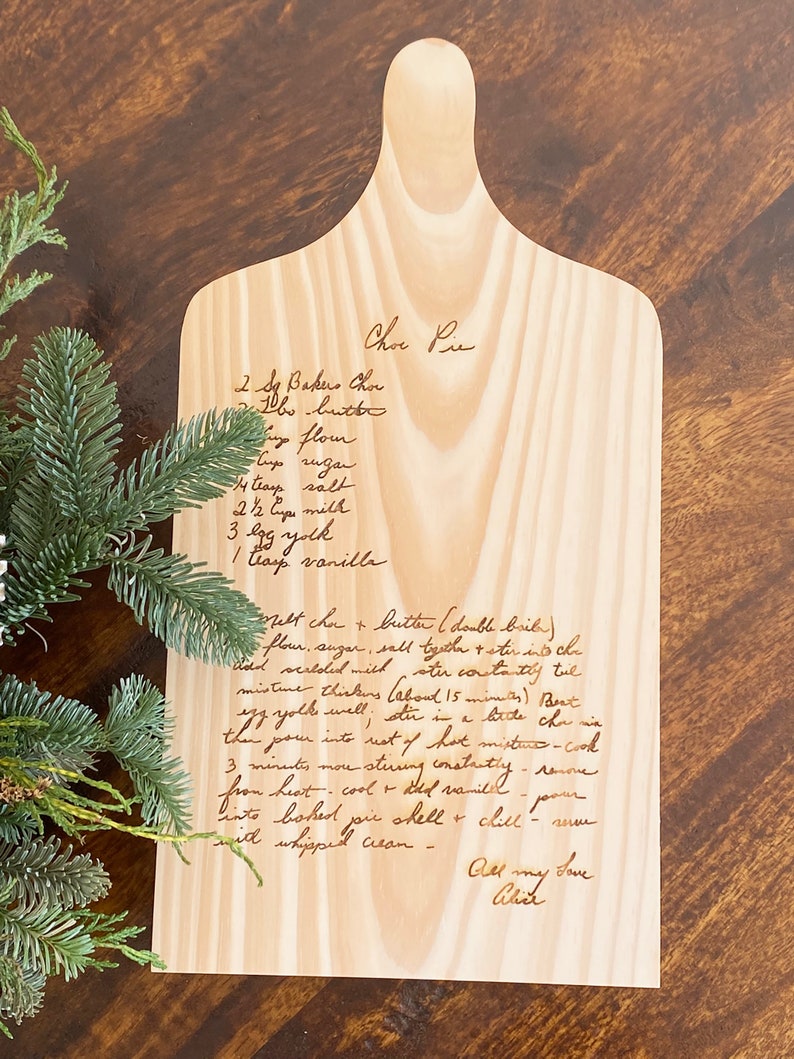 Choc Pie
2 Sq Bakers Choc
Tbs butter
Cup flour
Cup sugar
1/4 teasp salt
2 1/2 Cups milk
3 Egg yolk
1 teasp vanilla
Melt choc + butter (double boiler)
flour, sugar, salt together + stir into choc
add scalded milk stir constantly til
mixture thickens (about 15 minutes) Beat
egg yolks well; stir in a little choc mix
then pour into rest of hot mixture - cook
3 minutes more stirring constantly - remove
from heat - cool & add vanilla - pour
into baked pie shell & chill - serve
with whipped cream -
All my Love
Alice